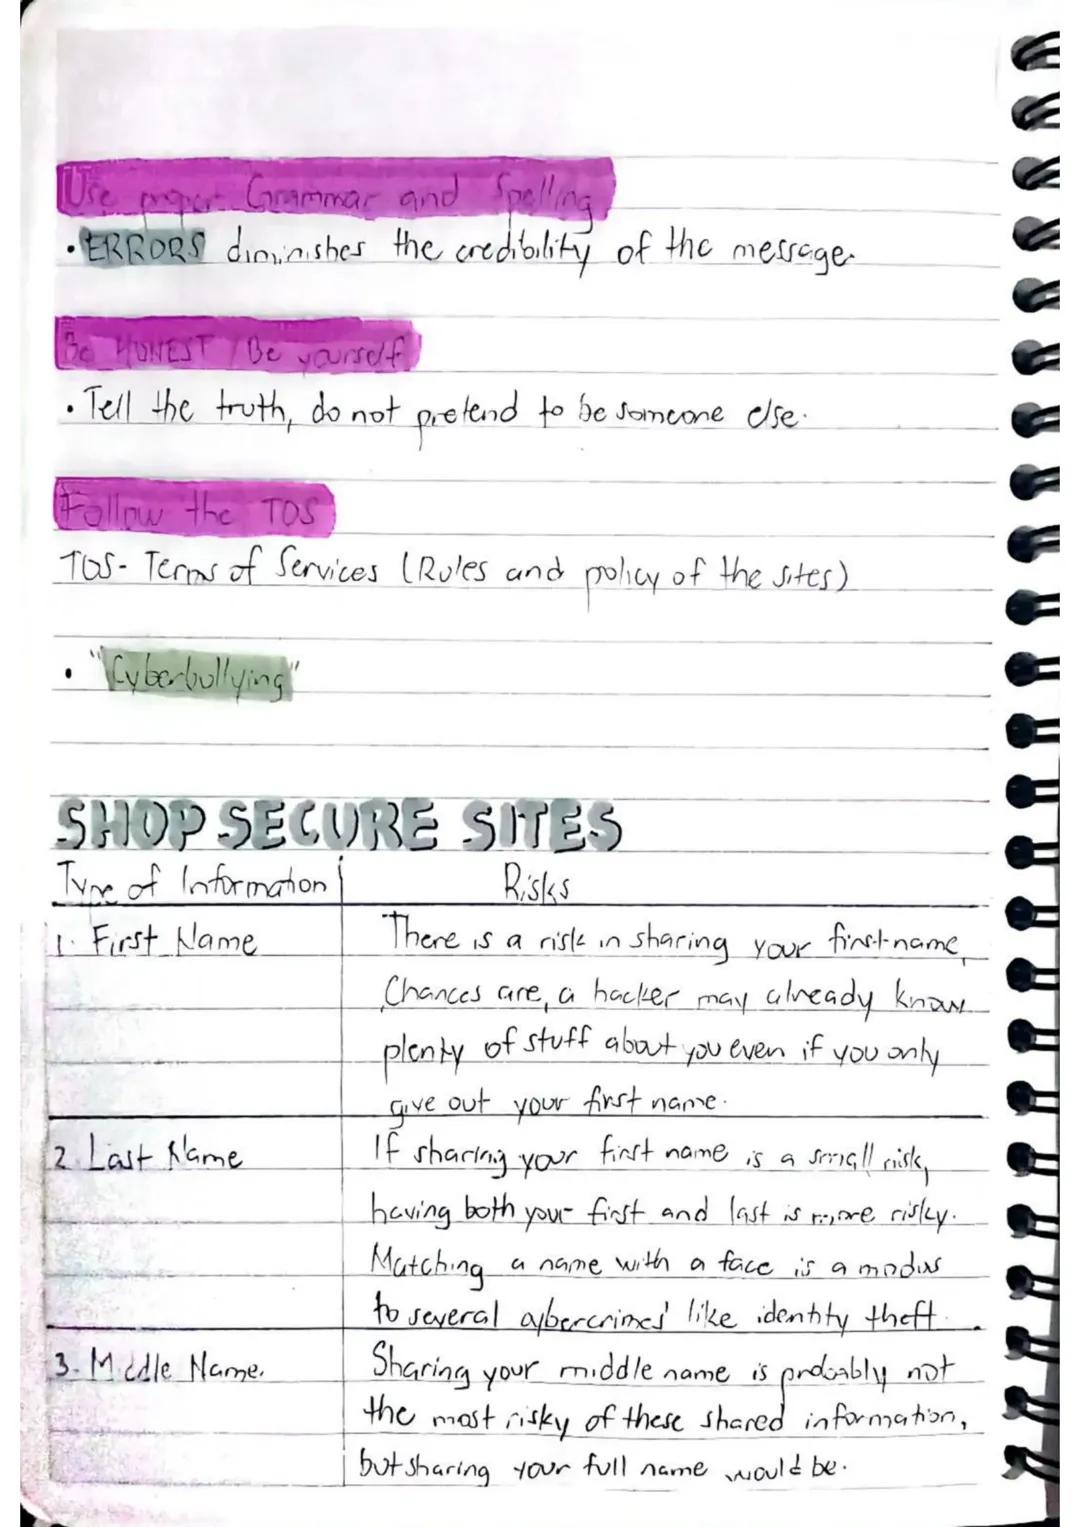 Use proper Grammar and Spelling
• ERRORS diminishes the credibility of the message.
Be HONEST / Be yourself
• Tell the truth, do not pretend to be someone else.
Follow the TOS
TOS - Terms of Services (Rules and policy of the sites)
• "Cyberbullying"
SHOP SECURE SITES
Type of Information Risks
1. First Name There is a risk in sharing your first name,
Chances are, a hacker may already know
plenty of stuff about you even if you only
give out your first name.
2. Last Name If sharing your first name is a small risk,
having both your first and last is more risky.
Matching a name with a face is a modus
to several cybercrimes' like identity theft.
3. Middle Name. Sharing your middle name is probably not
the most risky of these shared information,
but sharing your full name would be.